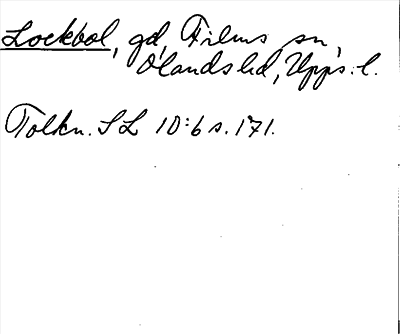 Lockbol, gd, Films sn,
Olands hd, Upps. l.
Tolkn. SL 10:6 s. 171.